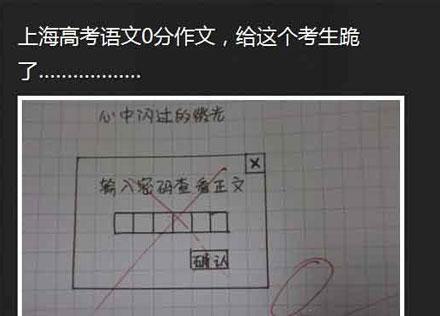 上海高考语文0分作文，给这个考生跪
了………………
心中闪过的微光
×
输入密码查看正文
确认